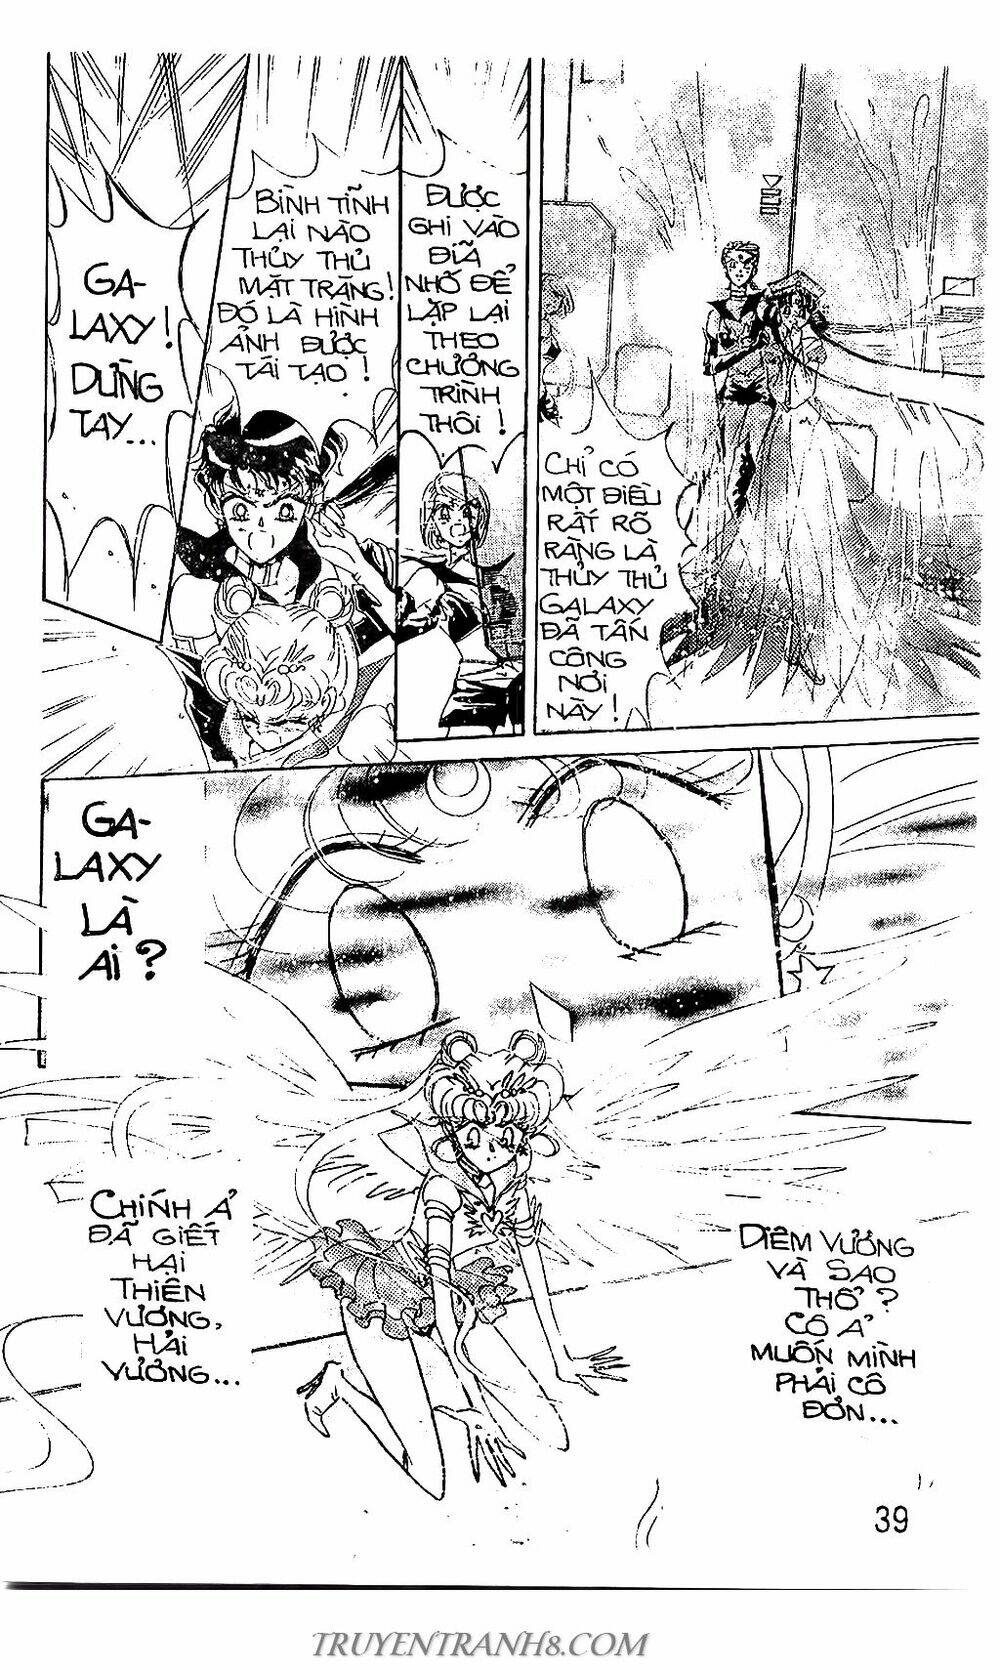 GA-
LAXY!
DỪNG
TAY...
BÌNH TĨNH
LẠI NÀO
THỦY THỦ
MẶT TRĂNG!
ĐÓ LÀ HÌNH
ẢNH ĐƯỢC
TÁI TẠO!
ĐƯỢC
GHI VÀO
ĐĨA
NHỚ ĐỂ
LẶP LẠI
THEO
CHƯƠNG
TRÌNH
THÔI!
CHỈ CÓ
MỘT ĐIỀU
RẤT RÕ
RÀNG LÀ
THỦY THỦ
GALAXY
ĐÃ TẤN
CÔNG
NƠI
NÀY!
GA-
LAXY
LÀ
AI?
CHÍNH Ả
ĐÃ GIẾT
HẠI
THIÊN
VƯƠNG,
HẢI
VƯƠNG...
DIÊM VƯƠNG
VÀ SAO
THỔ?
CÔ Ả
MUỐN MÌNH
PHẢI CÔ
ĐƠN...
39
TRUYENTRANH8.COM